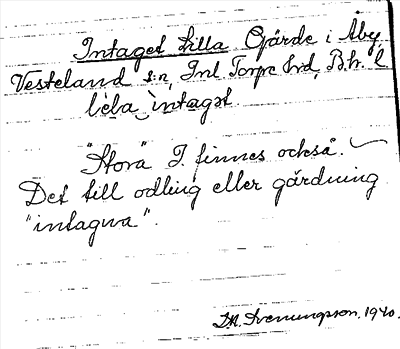 Intaget Lilla Gärde i Åby
Vesteland s:n, Inl. Torpe hrd, Bh. l.
lela intaget.
"Stora" I. finnes också.
Det till odling eller gärdning
"intagna".
Svenungsson, 1940.